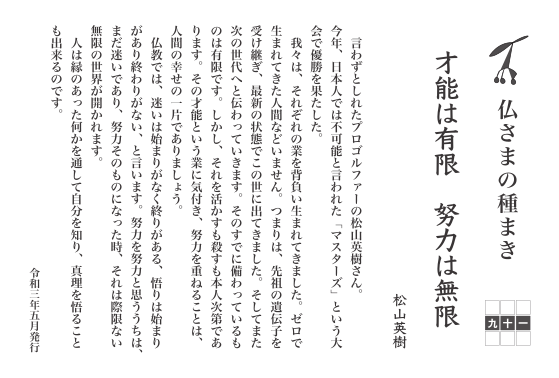 仏さまの種まき
九十一
才能は有限　努力は無限
松山英樹
言わずとしれたプロゴルファーの松山英樹さん。
今年、日本人では不可能と言われた「マスターズ」という大
会で優勝を果たした。
我々は、それぞれの業を背負い生まれてきました。ゼロで
生まれてきた人間などいません。つまりは、先祖の遺伝子を
受け継ぎ、最新の状態でこの世に出てきました。そしてまた
次の世代へと伝わっていきます。そのすでに備わっているも
のは有限です。しかし、それを活かすも殺すも本人次第であ
ります。その才能という業に気付き、努力を重ねることは、
人間の幸せの一片でありましょう。
仏教では、迷いは始まりがなく終りがある、悟りは始まり
があり終わりがない、と言います。努力を努力と思ううちは、
まだ迷いであり、努力そのものになった時、それは際限ない
無限の世界が開かれます。
人は縁のあった何かを通して自分を知り、真理を悟ること
も出来るのです。
令和三年五月発行